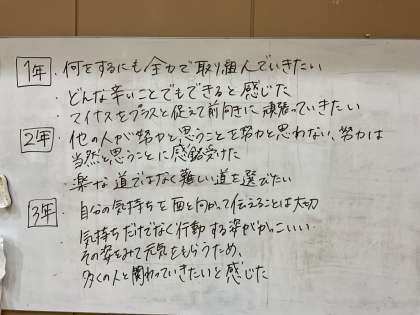 1年 ・何をするにも全力で取り組んでいきたい
・どんな辛いことでもできると感じた
・マイナスをプラスと捉えて前向きに頑張っていきたい
2年 ・他の人が努力と思うことを努力と思わない、努力は
当然と思うことに感銘受けた
・楽な道ではなく難しい道を選びたい
3年 ・自分の気持ちを面と向かって伝えることは大切
・気持ちだけでなく行動する姿がかっこいい
その姿をみて元気をもらうため、
多くの人と関わっていきたいと感じた